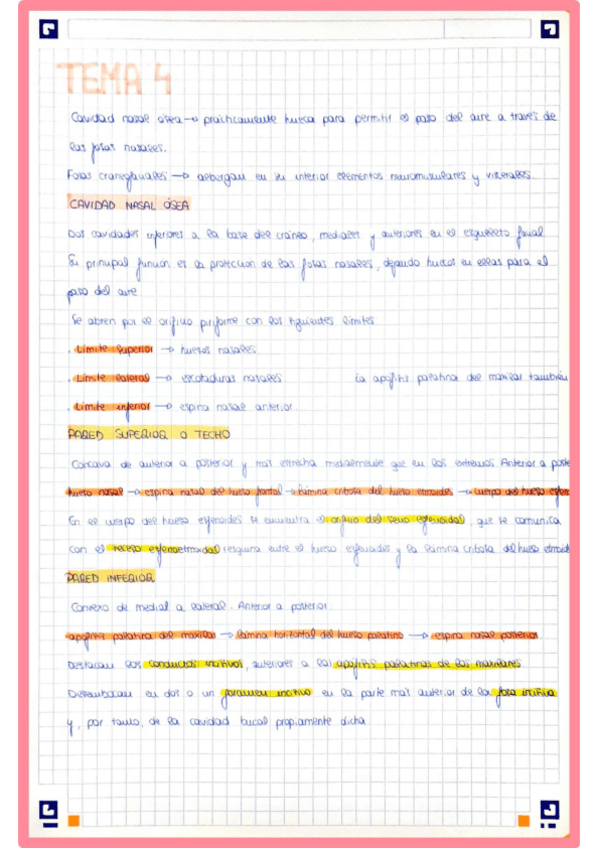 TEMA 4
Cavidad nasal ósea → prácticamente hueca para permitir el paso del aire a través de
las fosas nasales.
Fosas craneofaciales → albergan en su interior elementos neuromusculares y viscerales.
CAVIDAD NASAL ÓSEA
Dos cavidades inferiores a la base del cráneo, mediales y anteriores en el esqueleto facial
Su principal función es la protección de las fosas nasales, dejando huecos en ellas para el
paso del aire
Se abren por el orificio piriforme con los siguientes límites
. Límite superior → huesos nasales
. Límite lateral → escotaduras nasales (a apófisis palatina del maxilar también
. Límite inferior → espina nasal anterior.
PARED SUPERIOR O TECHO
Cóncava de anterior a posterior y más estrecha medialmente que en los extremos. Anterior a poste
hueso nasal → espina nasal del hueso frontal → lámina cribosa del hueso etmoides → cuerpo del hueso esfen
En el cuerpo del hueso esfenoides se encuentra el orificio del seno esfenoidal, que se comunica
con el receso esfenoetmoidal entre el hueso esfenoides y la lámina cribosa del hueso etmoid
PARED INFERIOR
Convexo de medial a lateral. Anterior a posterior:
apófisis palatina del maxilar → lámina horizontal del hueso palatino → espina nasal posterior
Destacan los conductos incisivos, anteriores a las apófisis palatinas de los maxilares
Desembocan en dos o un foramen incisivo en la parte más anterior de la fosa incisiva
y, por tanto, de la cavidad bucal propiamente dicha